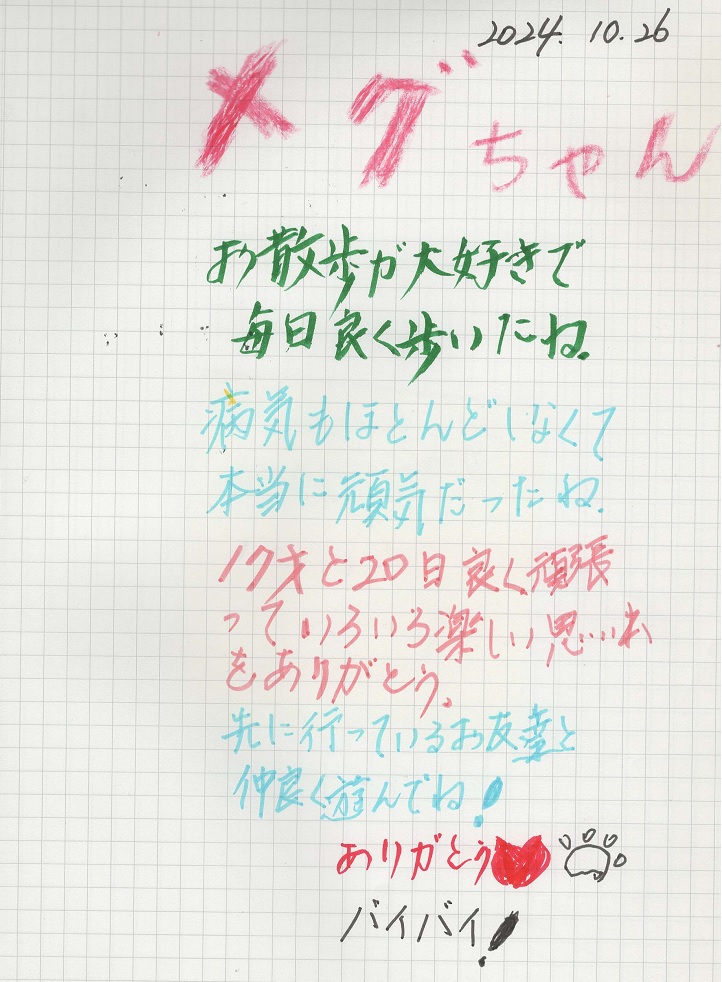 2024.10.26
メグちゃん
お散歩が大好きで
毎日良く歩いたね。
病気もほとんどしなくて
本当に頑気だったね。
17才と20日良く頑張
っていろいろ楽しい思い
をありがとう。
先に行っているお友達と
仲良く遊んでね!
ありがとう
バイバイ!